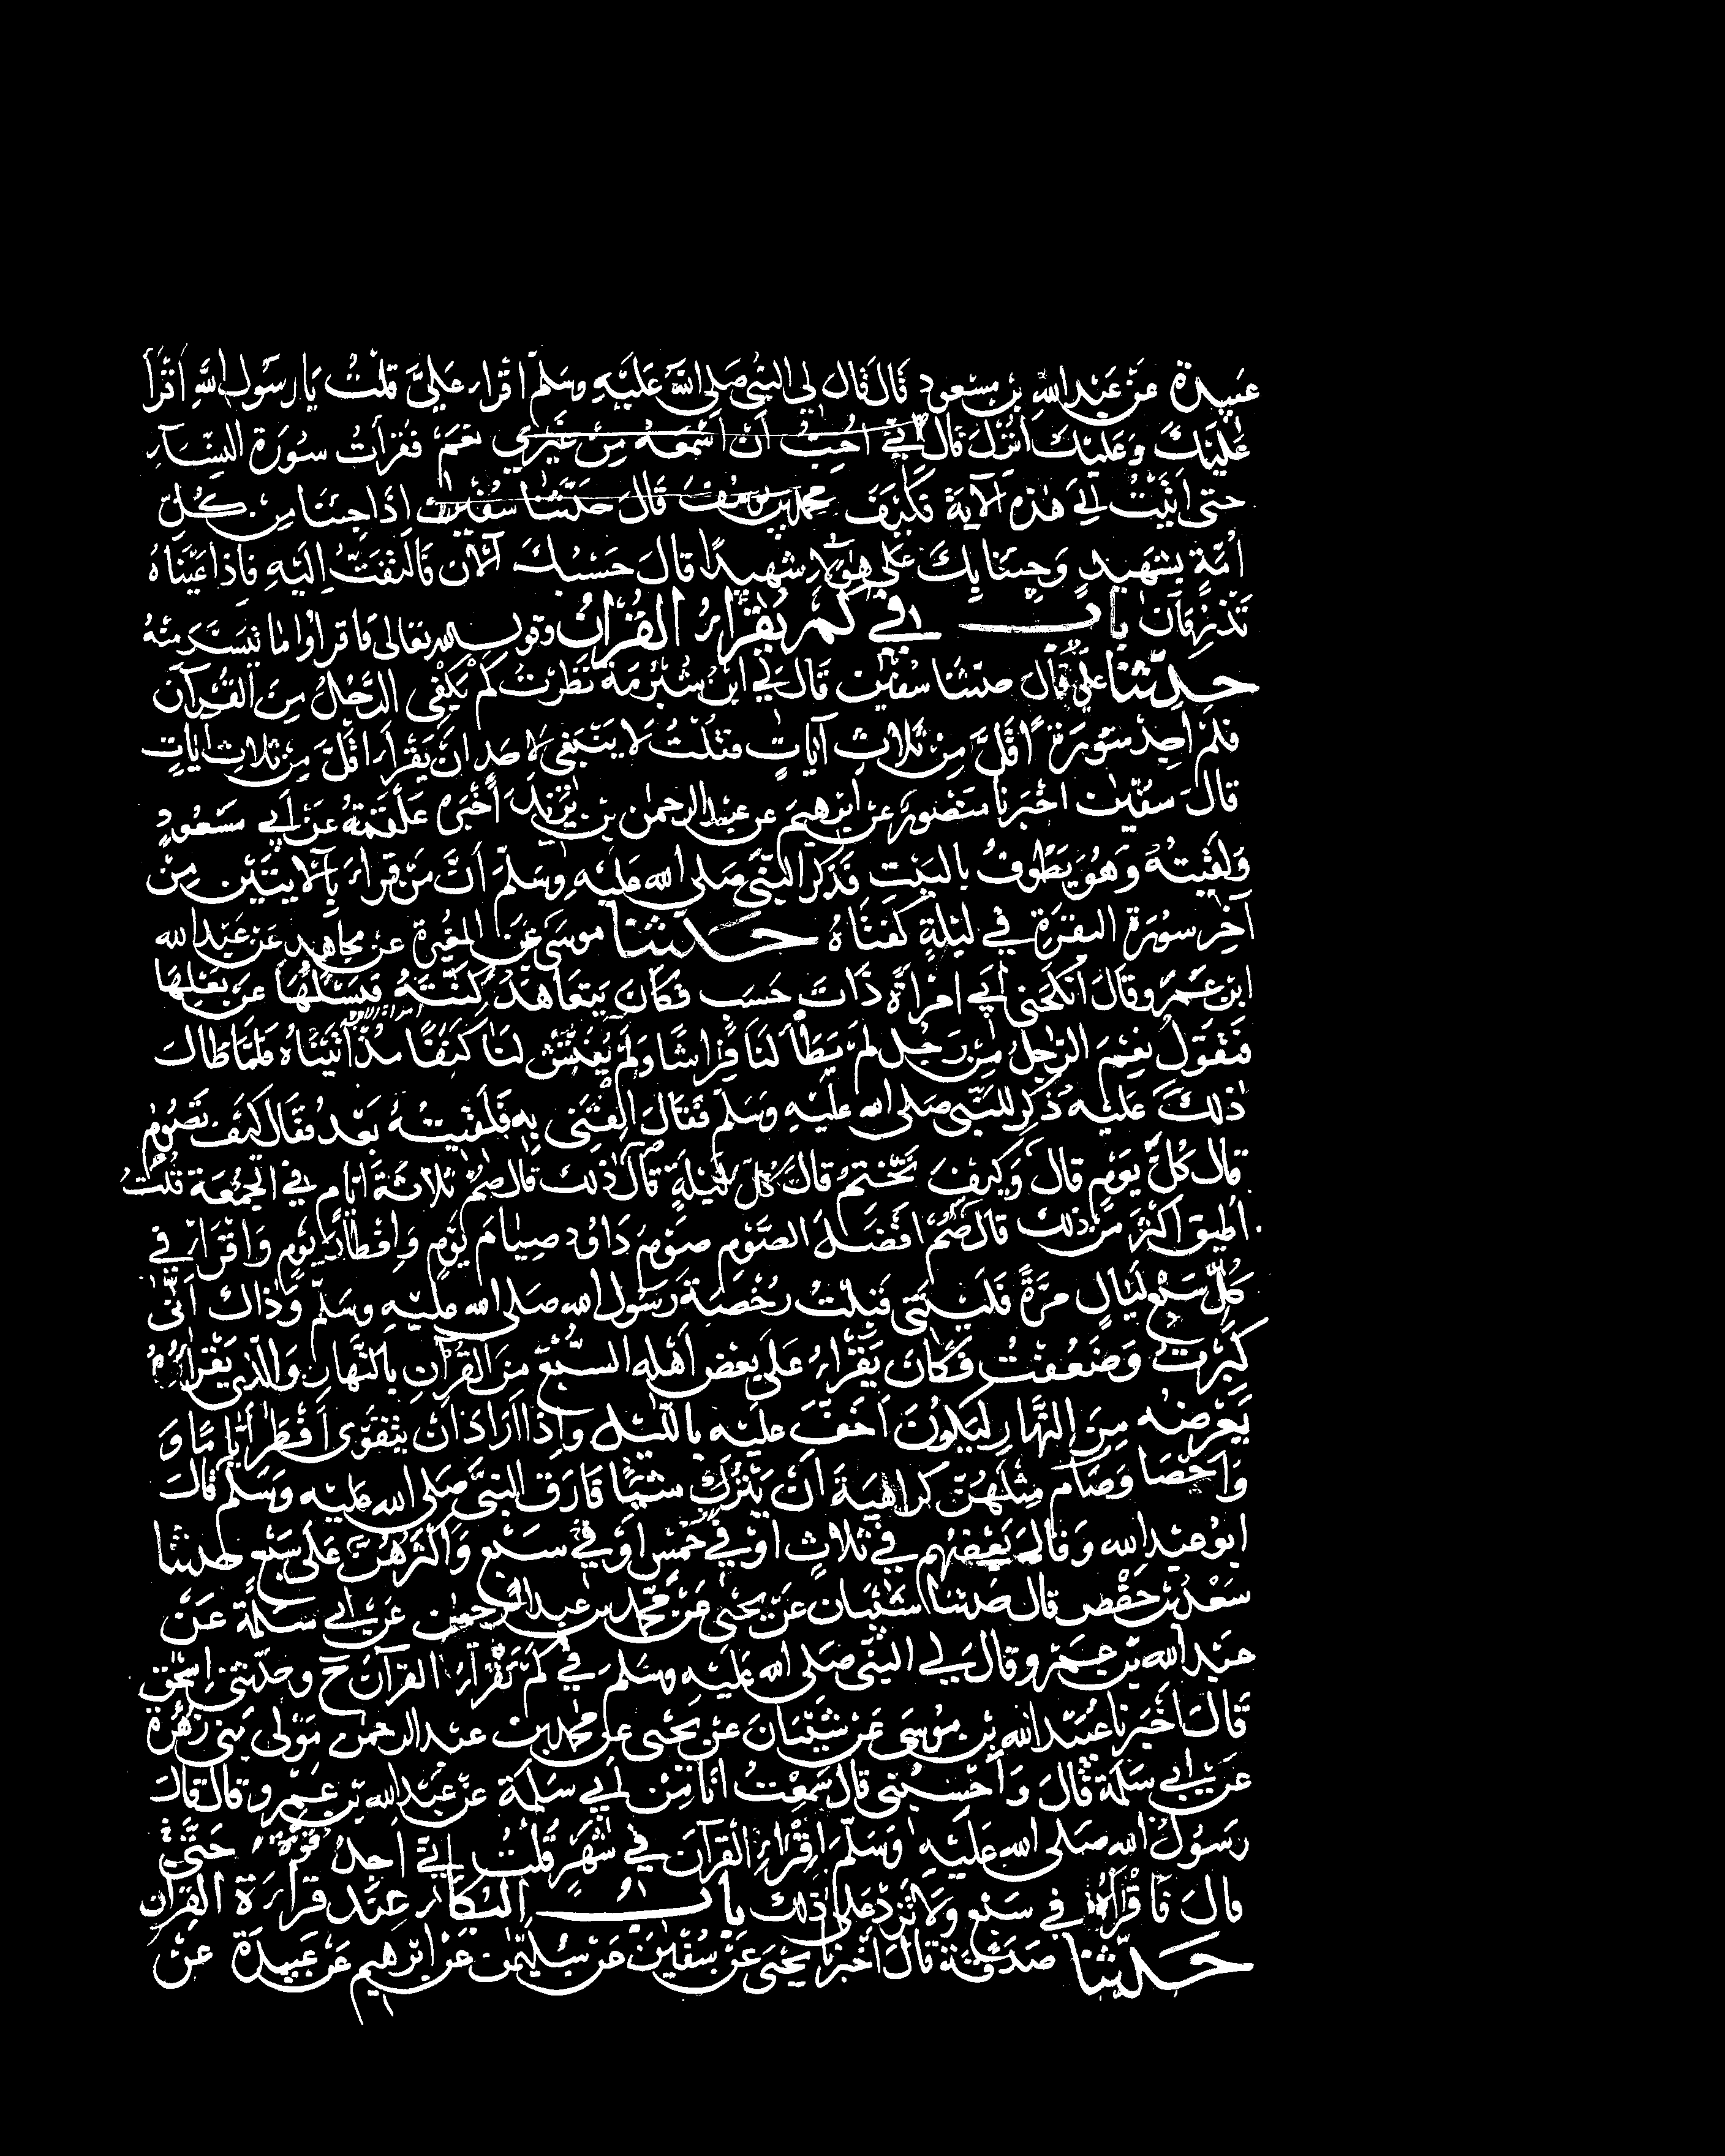 عبيدة عن عبد الله بن مسعود قال قال لي النبي صلى الله عليه وسلم اقراء علي قلت يا رسول الله اقرأ
عليك وعليك انزل قال اني احب ان اسمعه من غيري نعم فقرأت سورة النساء
حتى اتيت الى هذه الآية فكيف محمد بن يوسف قال حدثنا سفين اذا جئنا من كل
امة بشهيد وجئنا بك على هؤلاء شهيدا قال حسبك الآن فالتفت اليه فاذا عيناه
تذرفان باب في كم يقراء القرآن وقول الله تعالى فاقراوا ما تيسر منه
حدثنا علي قال حدثنا سفين قال لي ابن شبرمة نظرت كم يكفي الرجل من القرآن
فلم اجد سورة اقل من ثلاث آيات فقلت لا ينبغي لاحد ان يقرأ اقل من ثلاث ايات
قال سفين اخبرنا منصور عن ابرهيم عن عبد الرحمن بن يزيد اخبره علقمة عن ابي مسعود
ولقيته وهو يطوف بالبيت فذكر النبي صلى الله عليه وسلم ان من قراء بالآيتين من
آخر سورة البقرة في ليلة كفتاه حدثنا موسى عن المغيرة عن مجاهد عن عبد الله
ابن عمرو قال انكحني ابي امراة ذات حسب فكان يتعاهد كنته فيسئلها عن بعلها
فتقول نعم الرجل من رجل لم يطأ لنا فراشا ولم يفتش لنا كنفا مذ اتيناه فلما طال
ذلك عليه ذكر للنبي صلى الله عليه وسلم فقال القني به فلقيته بعد فقال كيف تصوم
قال كل يوم قال وكيف تختم قال كل ليلة قال ذلك قال صم ثلاثة ايام في الجمعة قلت
اطيق اكثر من ذلك قال صم افضل الصوم صوم داود صيام يوم وافطار يوم واقراء في
كل سبع ليال مرة فليتني قبلت رخصة رسول الله صلى الله عليه وسلم وذاك اني
كبرت وضعفت فكان يقراء على بعض اهله السبع من القرآن بالنهار والذي يقراه
يعرضه من النهار ليكون اخف عليه بالليل واذا اراد ان يتقوى افطر اياما و
واحصا وصام مثلهن كراهية ان يترك شيئا فارق النبي صلى الله عليه وسلم قال
ابو عبد الله وقال بعضهم في ثلاث او في خمس او في سبع واكثرهن على سبع حدثنا
سعد بن حفص قال حدثنا شيبان عن يحيى عن محمد بن عبد الرحمن عن ابي سلمة عن
عبد الله بن عمرو قال لي النبي صلى الله عليه وسلم في كم تقراء القرآن ح وحدثني اسحق
قال اخبرنا عبيد الله بن موسى عن شيبان عن يحيى عن محمد بن عبد الرحمن مولى بني زهرة
عن ابي سلمة قال واحسبني قال سمعت انا من ابي سلمة عن عبد الله بن عمرو قال قال
رسول الله صلى الله عليه وسلم اقراء القرآن في شهر قلت اني اجد قوة حتى
قال فاقراه في سبع ولا تزد على ذلك باب البكاء عند قراءة القرآن
حدثنا صدقة قال اخبرنا يحيى عن سفين عن سليمن عن ابرهيم عن عبيدة عن